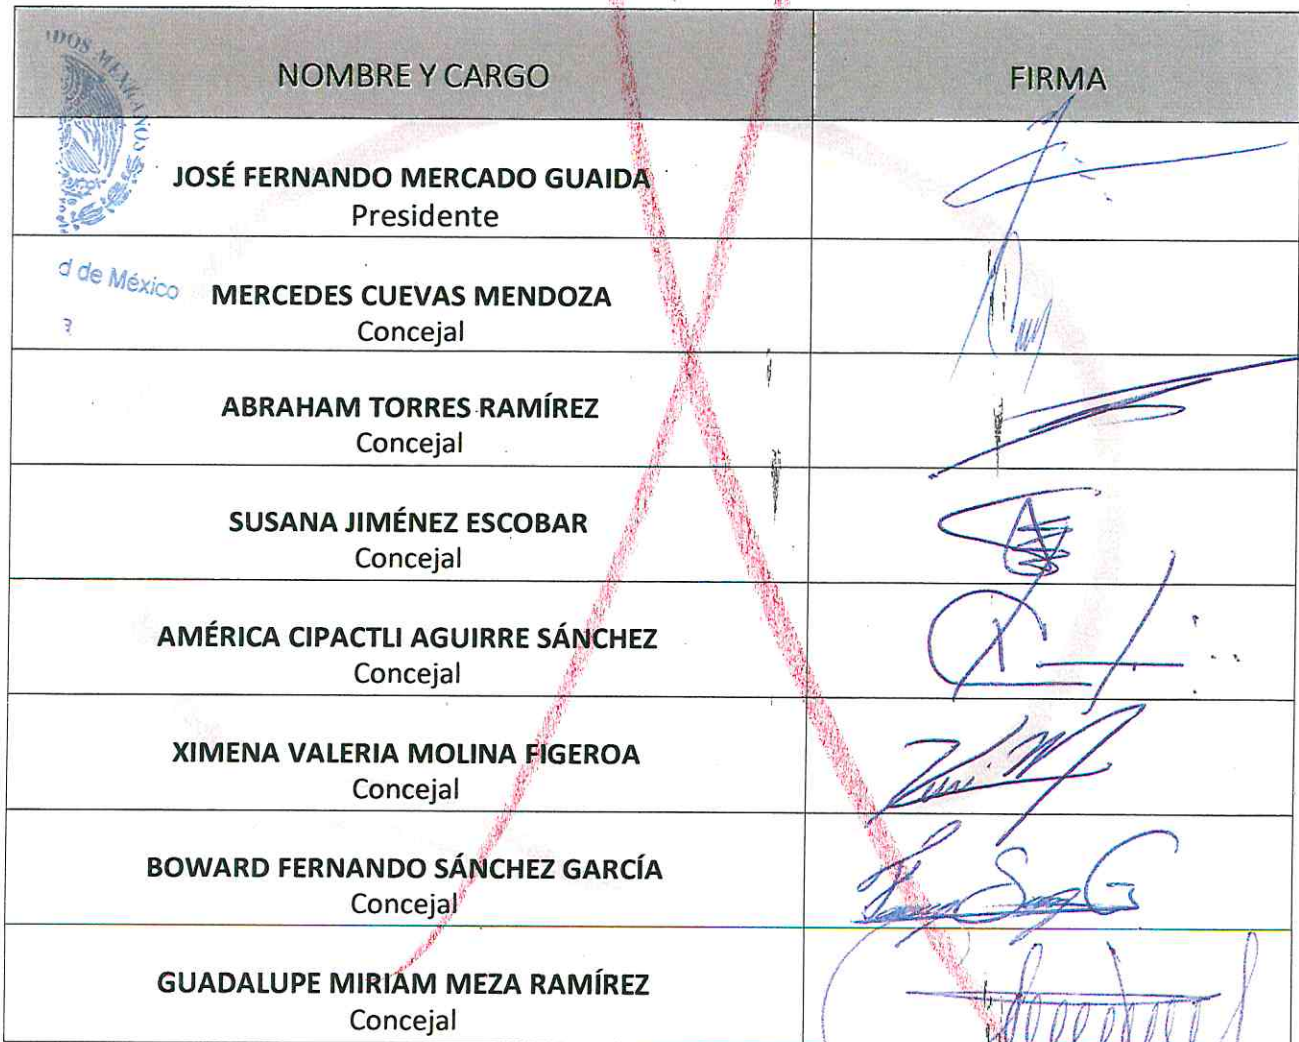 NOMBRE Y CARGO FIRMA
JOSÉ FERNANDO MERCADO GUAIDA
Presidente
d de México
MERCEDES CUEVAS MENDOZA
Concejal
ABRAHAM TORRES RAMÍREZ
Concejal
SUSANA JIMÉNEZ ESCOBAR
Concejal
AMÉRICA CIPACTLI AGUIRRE SÁNCHEZ
Concejal
XIMENA VALERIA MOLINA FIGEROA
Concejal
BOWARD FERNANDO SÁNCHEZ GARCÍA
Concejal
GUADALUPE MIRIAM MEZA RAMÍREZ
Concejal